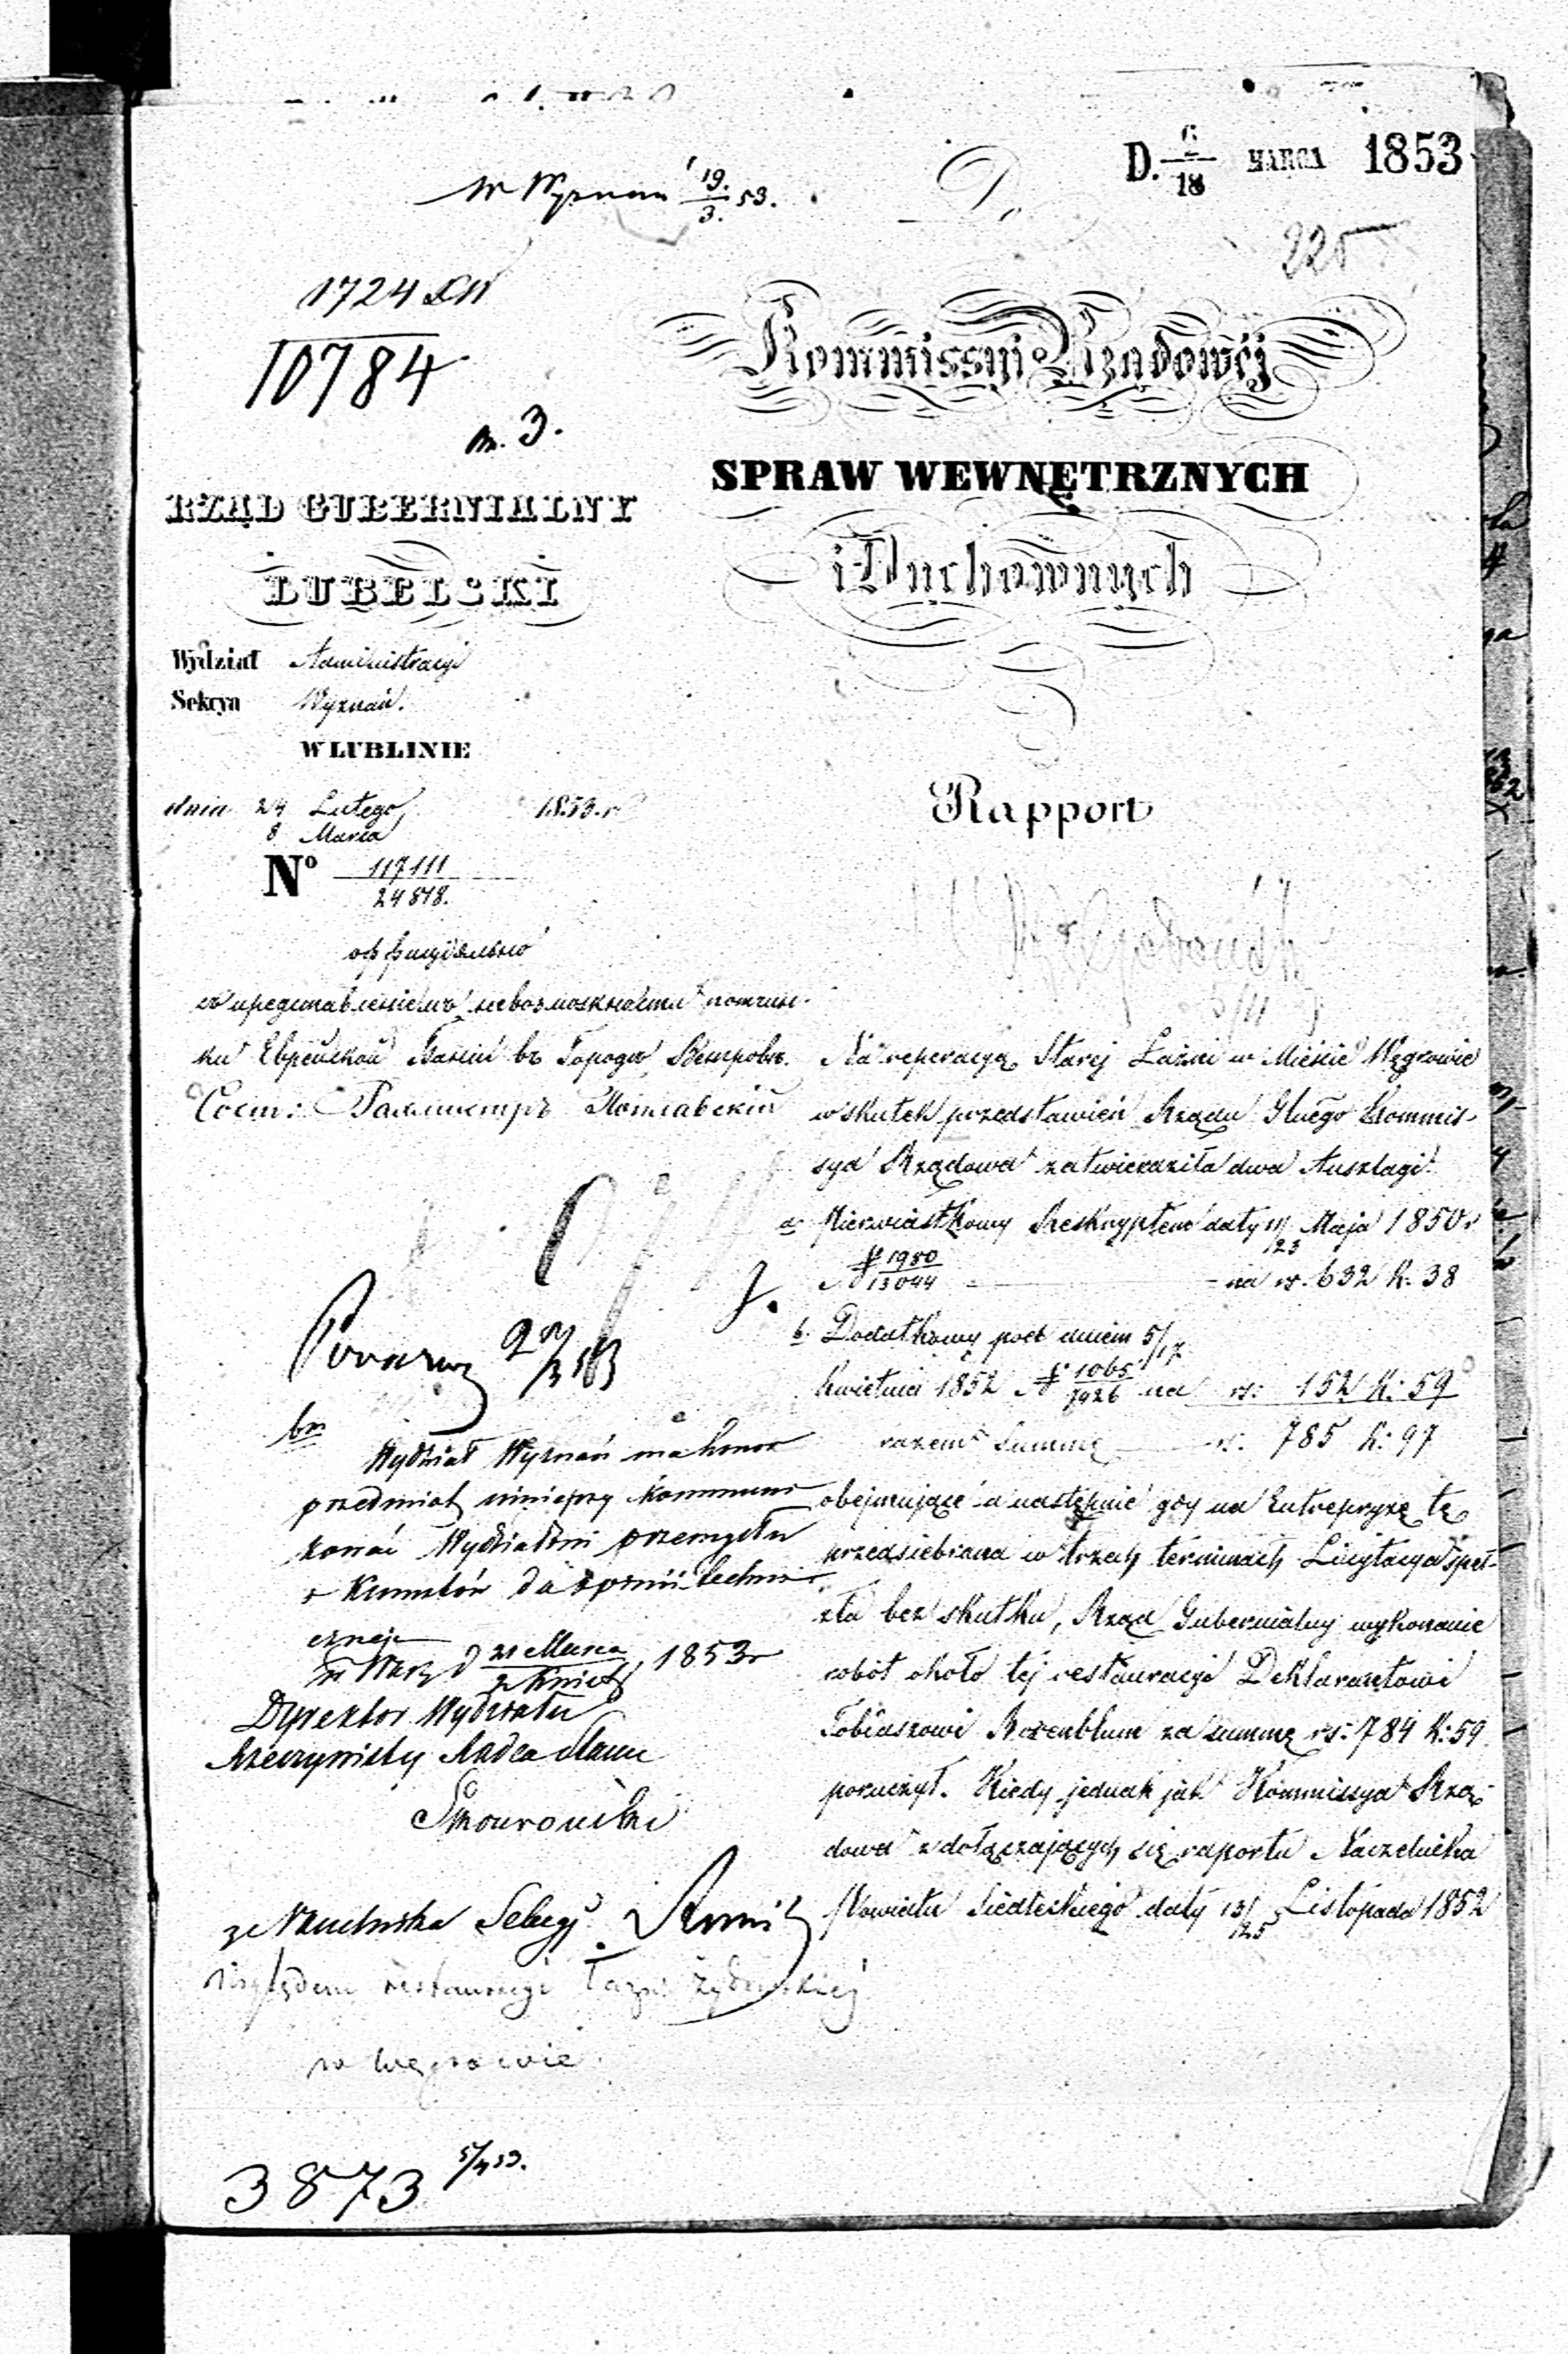 D. 6/18 MARCA 1853
W Wyznań 19/3. 53.
Do
225
1724 LW
10784
m. 3.
Kommissyi Rządowéj
SPRAW WEWNĘTRZNYCH
i Duchownych
RZĄD GUBERNIALNY
LUBELSKI
Wydział Administracyi
Sekcya Wyznań.
W LUBLINIE
dnia 24 Lutego / 8 Marca 1853. r
No 117111 / 24818.
Rapport
оффиціально
невозможно
Еврейской Бани въ Городѣ Венгровѣ.
Na reperacyą Starej Łaźni w Mieście Węgrowie
w skutek przedstawień Rządu Glnego Kommis-
sya Rządowa zatwierdziła dwa Anszlagi.
a. Pierwiastkowy Reskryptem daty 11/23 Maja 1850 r
N 1980/13044 - na rs. 632 k. 38
b. Dodatkowy pod dniem 5/17
Kwietnia 1852 N 1065/7926 na rs: 152 k: 59
razem Summę rs. 785 k: 97
obejmujące a następnie gdy na Entrepryzę tę
przedsiebrana w trzech terminach Licytacya speł-
zła bez skutku, Rząd Gubernialny wykonanie
robót około tej restauracyi Deklarantowi
Tobiaszowi Rozenblum za summę rs: 784 k: 59.
poruczył. Kiedy jednak jak Kommissya Rzą-
dowa z dołączających się raportu Naczelnika
Powiatu Siedleckiego daty 13/25 Listopada 1852
Wydział Wyznań ma honor
przedmiot niniejszy kommuni-
kować Wydziałowi przemysłu
i Kunsztów do opinii techni-
cznej
w Warz d 21 Marca / 2 Kwiet 1853 r
Dyrektor Wydziału
Rzeczywisty Radca Stanu
za Naczelnika Sekcyi
Względem restauracyi Łazni Żydowskiej
w Węgrowie.
3873 5/4 53.